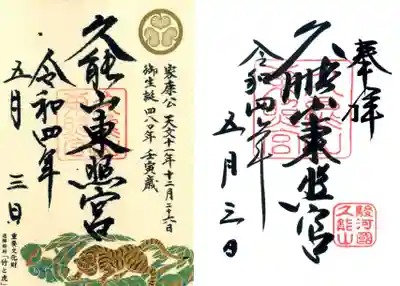 家康公 天文十一年十二月二十六日
御生誕四八〇年 壬寅歳
久能山東照宮
令和四年
五月 三日
重要文化財
「竹と虎」
奉拝
久能山東照宮
令和四年
五月三日
駿河國
久能山